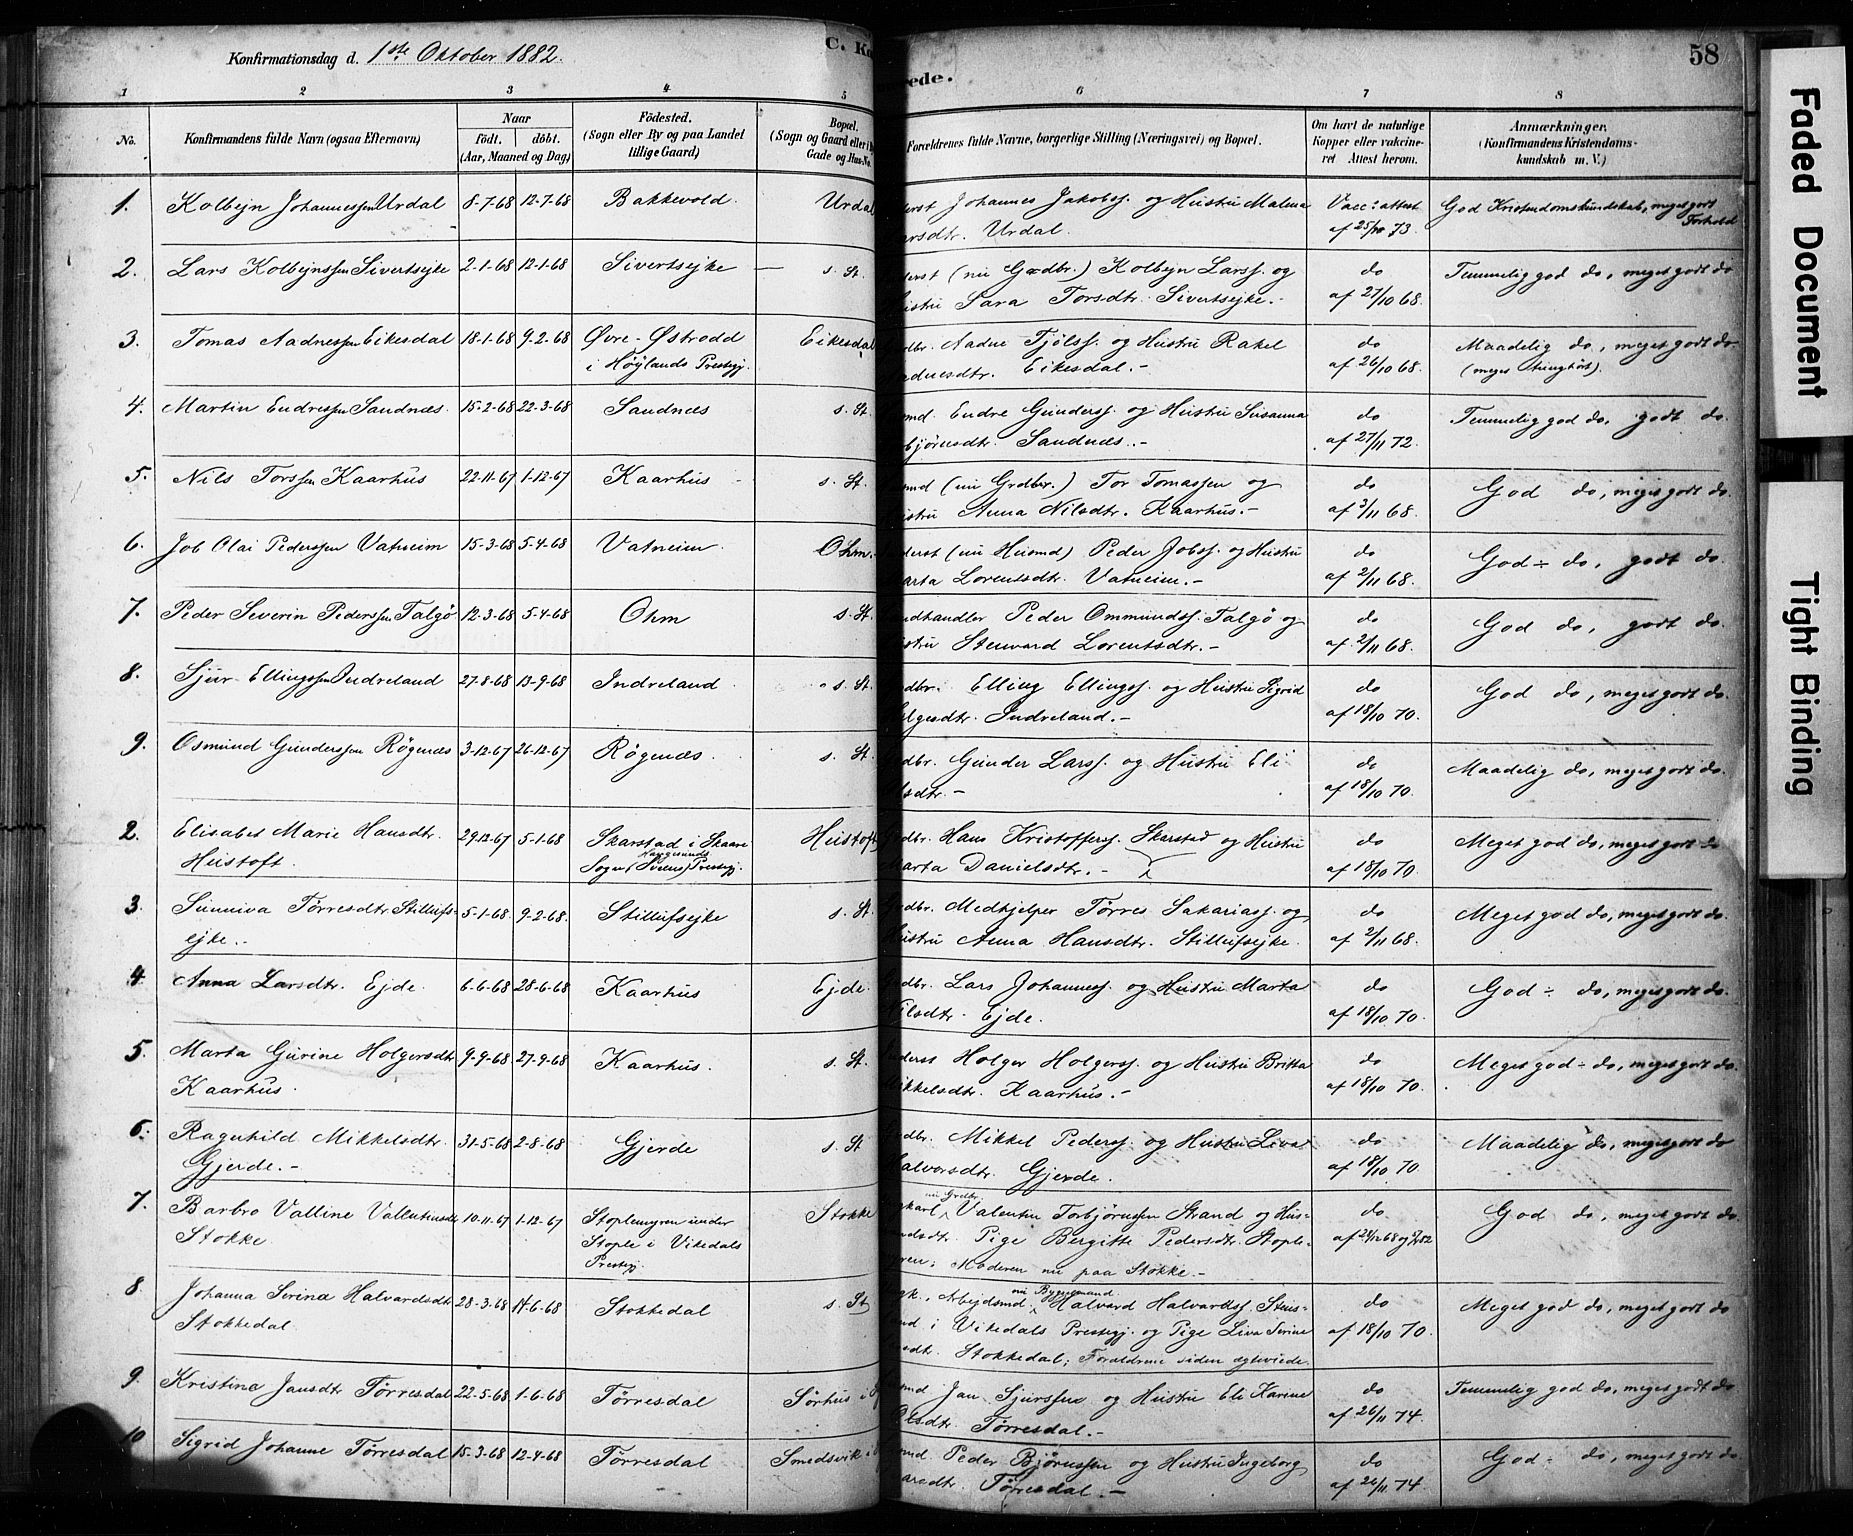 Konfirmationsdag d. 1ste Oktober 1882.
C. Ko
rede.
58
1 2 3 4 5 6 7 8
No.
Konfirmandens fulde Navn (ogsaa Efternavn)
Naar
födt. döbt.
(Aar, Maaned og Dag)
Födested.
(Sogn eller By og paa Landet
tillige Gaard)
Bopæl.
(Sogn og Gaard eller i
Gade og Hus-No.
Forældrenes fulde Navne, borgerlige Stilling (Næringsvei) og Bopæl.
Om havt de naturlige
Kopper eller vakcine-
ret Attest herom.
Anmærkninger.
(Konfirmandens Kristendoms-
kundskab m. V.)
1. Kolbejn Johannessen Urdal 8-7-68 12-7-68 Bakkevold. Urdal
derst Johannes Jakobss. og Hustru Malena Vacc: attest God Kristendomskundskab, meget godt
arsdtr. Urdal. af 25/10 73. Forhold
2. Lars Kolbejnssen Sivertsejke 2-1-68 12-1-68 Sivertsejke — s. St.
derst (nu Grdbr.) Kolbejn Larss. og do Temmelig god do, meget godt do
ustru Sara Torsdtr. Sivertsejke.- af 27/10 68.
3. Tomas Aadnessen Eikesdal 18-1-68 9-2-68 Øvre-Østrodd Eikesdal
i Höjlands Prestegj.
rdbr. Aadne Tjölss. og Hustru Rakel do Maadelig do, meget godt do
adnesdtr. Eikesdal.- af 26/10 68. (meget tunghört)
4. Martin Endressen Sandnæs. 15-2-68 22-3-68 Sandnæs s. St.
smd. Endre Gunderss. og Hustru Susanna do Temmelig god do, godt do.
björnsdtr. Sandnæs.- af 27/11 72.
5. Nils Torssen Kaarhus 22-11-67 1-12-67 Kaarhus s. St.
smd (nu Grdbr.) Tor Tomassen og do God do, meget godt do.
ustru Anna Nilsdtr. Kaarhus.- af 3/11 68.
6. Job Olai Pederssen Vatneim 15-3-68 5-4-68 Vatneim. Ohm.
derst (nu Husmd) Peder Jobss. og Hustru do God ÷ do, godt do.
arta Lorentsdtr. Vatneim.- af 2/11 68.
7. Peder Severin Pederssen Talgö 12-3-68 5-4-68 Ohm s. St.
ndhandler Peder Ommundss. Talgö og do God do, godt do.
ustru Stenvard Lorentsdtr.- af 2/11 68.
8. Sjur Ellingssen Indreland 27-8-68 13-9-68 Indreland s. St.
rdbr. Elling Ellingss. og Hustru Sigrid do God do, meget godt do.
olgersdtr. Indreland.- af 18/10 70.
9. Osmund Gunderssen Røgenæs 3-12-67 26-12-67 Røgenæs. s. St.
rdbr. Gunder Larss. og Hustru Eli do Maadelig do, meget godt do.
lsdtr.- af 18/10 70.
2. Elisabet Marie Hansdtr. 29-12-67 5-1-68 Skarstad i Skaare Hustoft
Hustoft. Haugesunds
Sogn, Prestegj.
Grdbr. Hans Kristofferss. Skarstad og Hustru do Meget god do, meget godt do
Marta Danielsdtr.- af 18/10 70.
3. Sunniva Tørresdtr. Stillufs- 5-1-68 9-2-68 Stillufsejke s. St.
ejke.-
Grdbr. Medhjelper Tørres Sakariass. og do Meget god do, meget godt do.
Hustru Anna Hansdtr. Stillufsejke. af 2/11 68.
4. Anna Larsdtr. Ejde 6-6-68 28-6-68 Kaarhus Ejde.
Grdbr. Lars Johanness. og Hustru Marta do God ÷ do, meget godt do.
Nilsdtr. Ejde. af 18/10 70.
5. Marta Gurine Holgersdtr. 9-9-68 27-9-68 Kaarhus. s. St.
Kaarhus.
Inderst Holger Holgerss. og Hustru Britta do Meget god ÷ do, meget godt do.
Mikkelsdtr. Kaarhus.- af 18/10 70.
6. Ragnhild Mikkelsdtr. 31-5-68 2-8-68 Gjerde s. St
Gjerde.-
rdbr. Mikkel Pederss. og Hustru Liva do Maadelig do, meget godt do
alvorsdtr. Gjerde. af 18/10 70.
7. Barbro Valline Vallentinsdtr 10-11-67 1-12-67 Stoplemyren under Stokke
Stokke Stople i Vikedals
Prestegj.
nu Grdbr.
gkarl Valentin Torbjörnssen Strand og Hus- do God do, meget godt do.
ndsdtr. Pige Bergitte Pedersdtr. Stople- af
yren; Moderen nu paa Stokke.-
8. Johanna Serina Halvardsdtr 28-3-68 14-6-68 Stokkedal s. St
Stokkedal
nu Byggemand
gk. Arbejdsmd Halvard Halvardss. Stens- do Meget god do, meget godt do
nd i Vikedals Prestegj. og Pige Liva Serine af 18/10 70.
sdtr. Stokkedal; Forældrene siden ægteviede.
9. Kristina Jansdtr Tørresdal 22-5-68 1-6-68 Tørresdal Sørhus i
smd Jan Sjurssen og Hustru Eli Karine do Temmelig god do, meget godt do
Olsdtr. Tørresdal.- af 26/11 74.
10 Sigrid Johanne Tørresdal 15-3-68 12-4-68 Tørresdal Smedsvik i
smd. Peder Bjørnssen og Hustru Ingeborg do God ÷ do, meget godt do.
aredtr. Tørresdal.- af 26/11 74.
Faded Document
Tight Binding